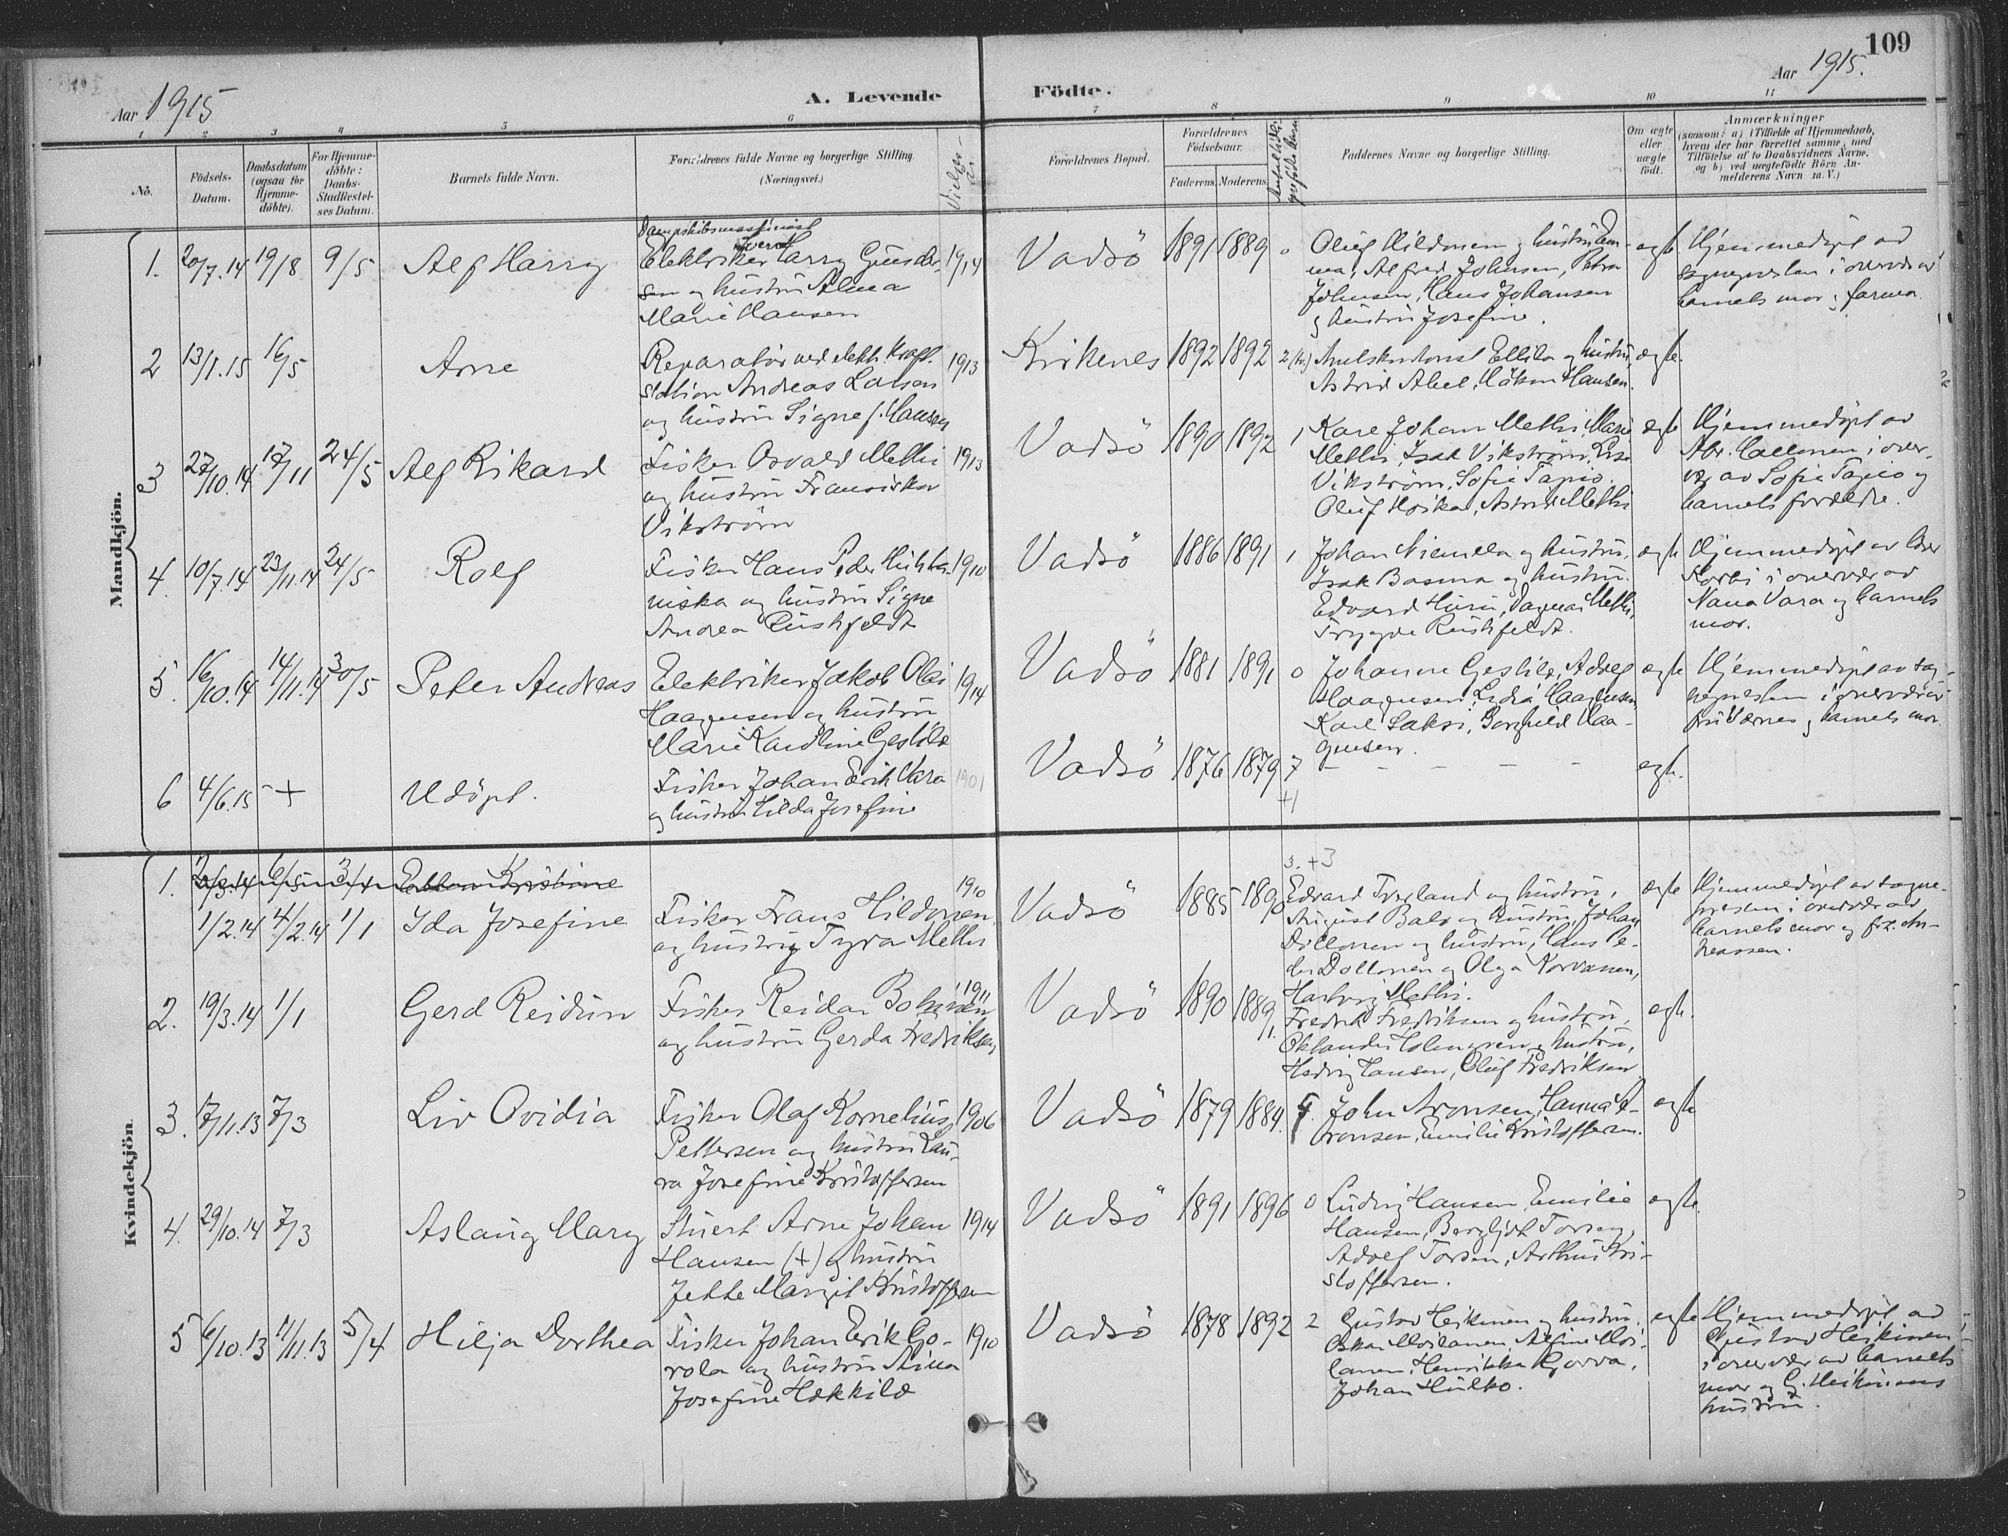 109
Aar 1915
A. Levende Födte.
Aar 1915.
1 2 3 4 5 6 7 8 9 10 11
No.
Födsels-
Datum.
Daabsdatum
(ogsaa for
Hjemme-
döbte).
For Hjemme-
döbte:
Daabs-
Stadfæstel-
ses Datum.
Barnets fulde Navn.
Forældrenes fulde Navne og borgerlige Stilling.
(Næringsvei.)
Forældrenes Bopæl.
Forældrenes
Födselsaar.
Faderens. Moderens.
Faddernes Navne og borgerlige Stilling.
Om ægte
eller
uægte
født.
Anmærkninger
(saasom: a) i Tilfælde af Hjemmedaab,
hvem der har forrettet samme, med
Tilföielse af to Daabsvidners Navne.
og b) ved uægtefödte Börn An-
melderens Navn m. V.)
Mandkjön.
1. 20/7.14 19/8 9/5 Alf Harry
Dampskibsmaskinist
Elektriker Harry Gunder-
sen og hustru Alma
Marie Hansen
1914
Vadsö 1891 1889 0
Oluf Hildonen og hustru Em-
ma, Alfred Johnsen, Petra
Johnsen, Hans Johansen
og hustru Josefine.
egte
Hjemmedöpt av
sognepresten i overvær av
barnets mor og farmor
2 13/1.15 16/5 Arne
Reparatör ved elektr. kraft-
station Andreas Larsen
og hustru Signe f. Hansen
1913
Kirkenes 1892 1892
og hustru,
Astrid Abel, Håkon Hansen.
egte.
3 27/10.14 17/11 24/5 Alf Rikard
Fisker Osvald Methi
og hustru Fransiska
Vikström
1913
Vadsö 1890 1892 1
Kare Johan Methi, Marie
Methi, Isak Vikström, Lise
Vikström, Sofie Tapio,
Oluf Hoikka, Astrid Methi
egte
Hjemmedöpt av
i over-
vær av Sofie Tapio og
barnets foreldre.
4. 10/7.14 23/11.14 24/5 Rolf
Fisker Hans Peder
og hustru Signe
Andrea Rushfeldt
1910
Vadsö 1886 1891 1
Johan Niemela og hustru,
Isak Basma og hustru
Edvard, Dagmar Methi,
Trygve Rushfeldt.
egte
Hjemmedöpt av
i overvær av
Nana Vara og barnets
mor.
5. 16/10.14 14/11.14 30/5 Peter Andreas
Elektriker Jakob Olai
Haagensen og hustru
Marie Karoline Gestild
1914
Vadsö 1881 1891 0
Johanne Gestild, Adolf
Haagensen, Lydia Haagensen
Karl Saksi, Borghild Haa-
gensen.
egte
Hjemmedöpt av sog-
nepresten i overvær av
og barnets mor.
6 4/6.15 - + Udöpt.
Fisker Johan Erik Vara
og hustru Hilda Josefine
1901
Vadsö 1876 1879 7
+1
- - - - -
egte.
Kvindekjön.
1. Kristine
1/2.14 4/2.14 1/1 Ida Josefine
Fisker Frans Hildonen
og hustru Tyra Methi
1910
Vadsö 1885 1890
3. +3
Edvard Tverland og hustru,
August Balo og hustru, Johan
Dollonen og hustru, Hans Pe-
der Dollonen og Olga Korvanen,
Hartvig Methi.
egte
Hjemmedöpt av sogne-
presten i overvær av
barnets mor og frk. An-
dreassen.
2. 19/3.14 1/1 Gerd Reidun
Fisker Reidar
og hustru Gerda Fredriksen
1911
Vadsö 1890 1889 1.
Fredrik Fredriksen og hustru,
Holmgren og hustru,
Hedvig Hansen, Oluf Fredriksen
egte.
3. 17/11.13 7/3 Liv Ovidia
Fisker Olaf Kornelius
Pettersen og hustru Lau-
ra Josefine Kristoffersen
1906
Vadsö 1879 1884. 4
John Aronsen, Hanna A-
ronsen, Emilie Kristoffersen.
egte
4. 29/10.14 7/3 Aslaug Mary
Stuert Arne Johan
Hansen (+) og hustru
Jette Margit Kristoffersen
1914
Vadsö 1891 1896 0
Ludvig Hansen, Emilie
Hansen, Bergljot Torsen,
Adolf Torsen, Arthur Kri-
stoffersen.
egte.
5 6/10.13 11/11.13 5/4 Hilja Dorthea
Fisker Johan Erik Go-
rola og hustru Stina
Josefine Hekkilæ
1910
Vadsö 1878 1892 2
Gustav Heikinen og hustru
Oskar Moilanen, Alfine Moi-
lanen, Henrikka Gorva,
Johan Hulko.
egte
Hjemmedöpt av
Gustav Heikinen
i overvær av barnets
mor og G. Heikinens
hustru.